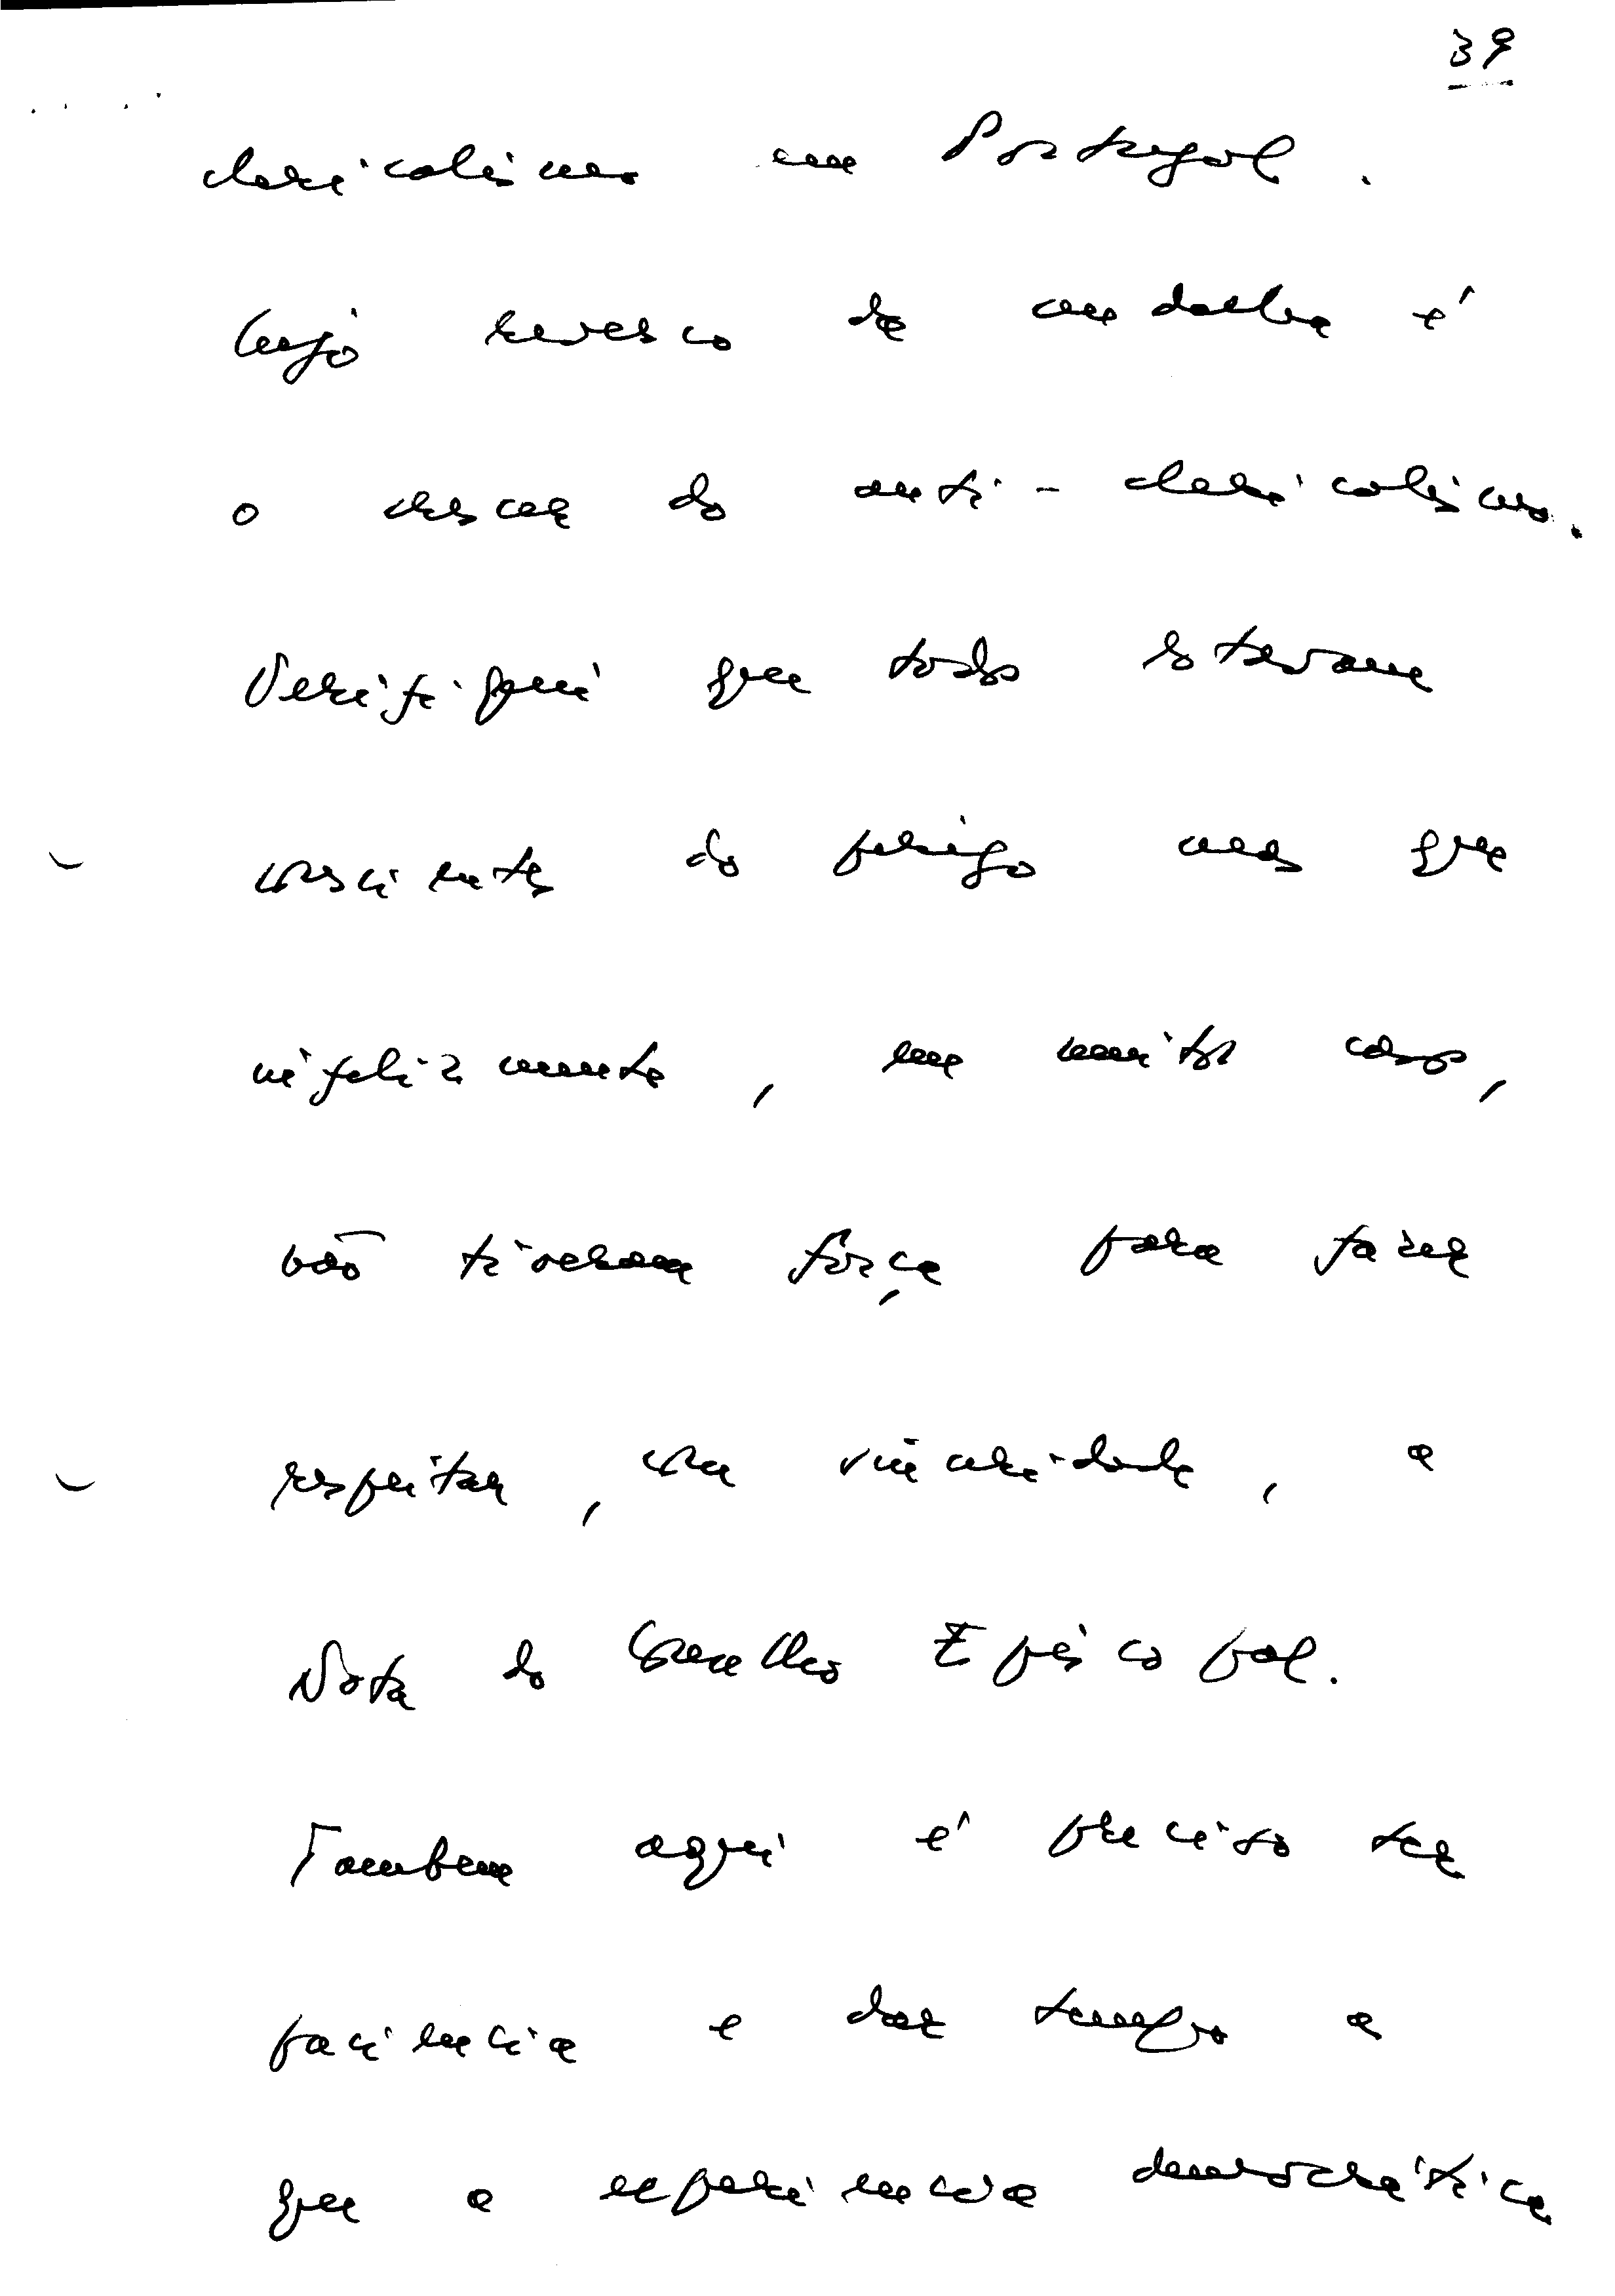 39
clericalismo em Portugal.
Cujo reverso da medalha é
o descer do anti-clericalismo.
Verifiquei que todos estavam
conscientes do perigo mas que
infelizmente, em muitos casos,
não tiveram força para fazer
respeitar, com vincaridade, a
Nota do Conselho Episcopal.
Tambem aqui é preciso ter
paciencia e dar tempo a
que a experiencia democrática